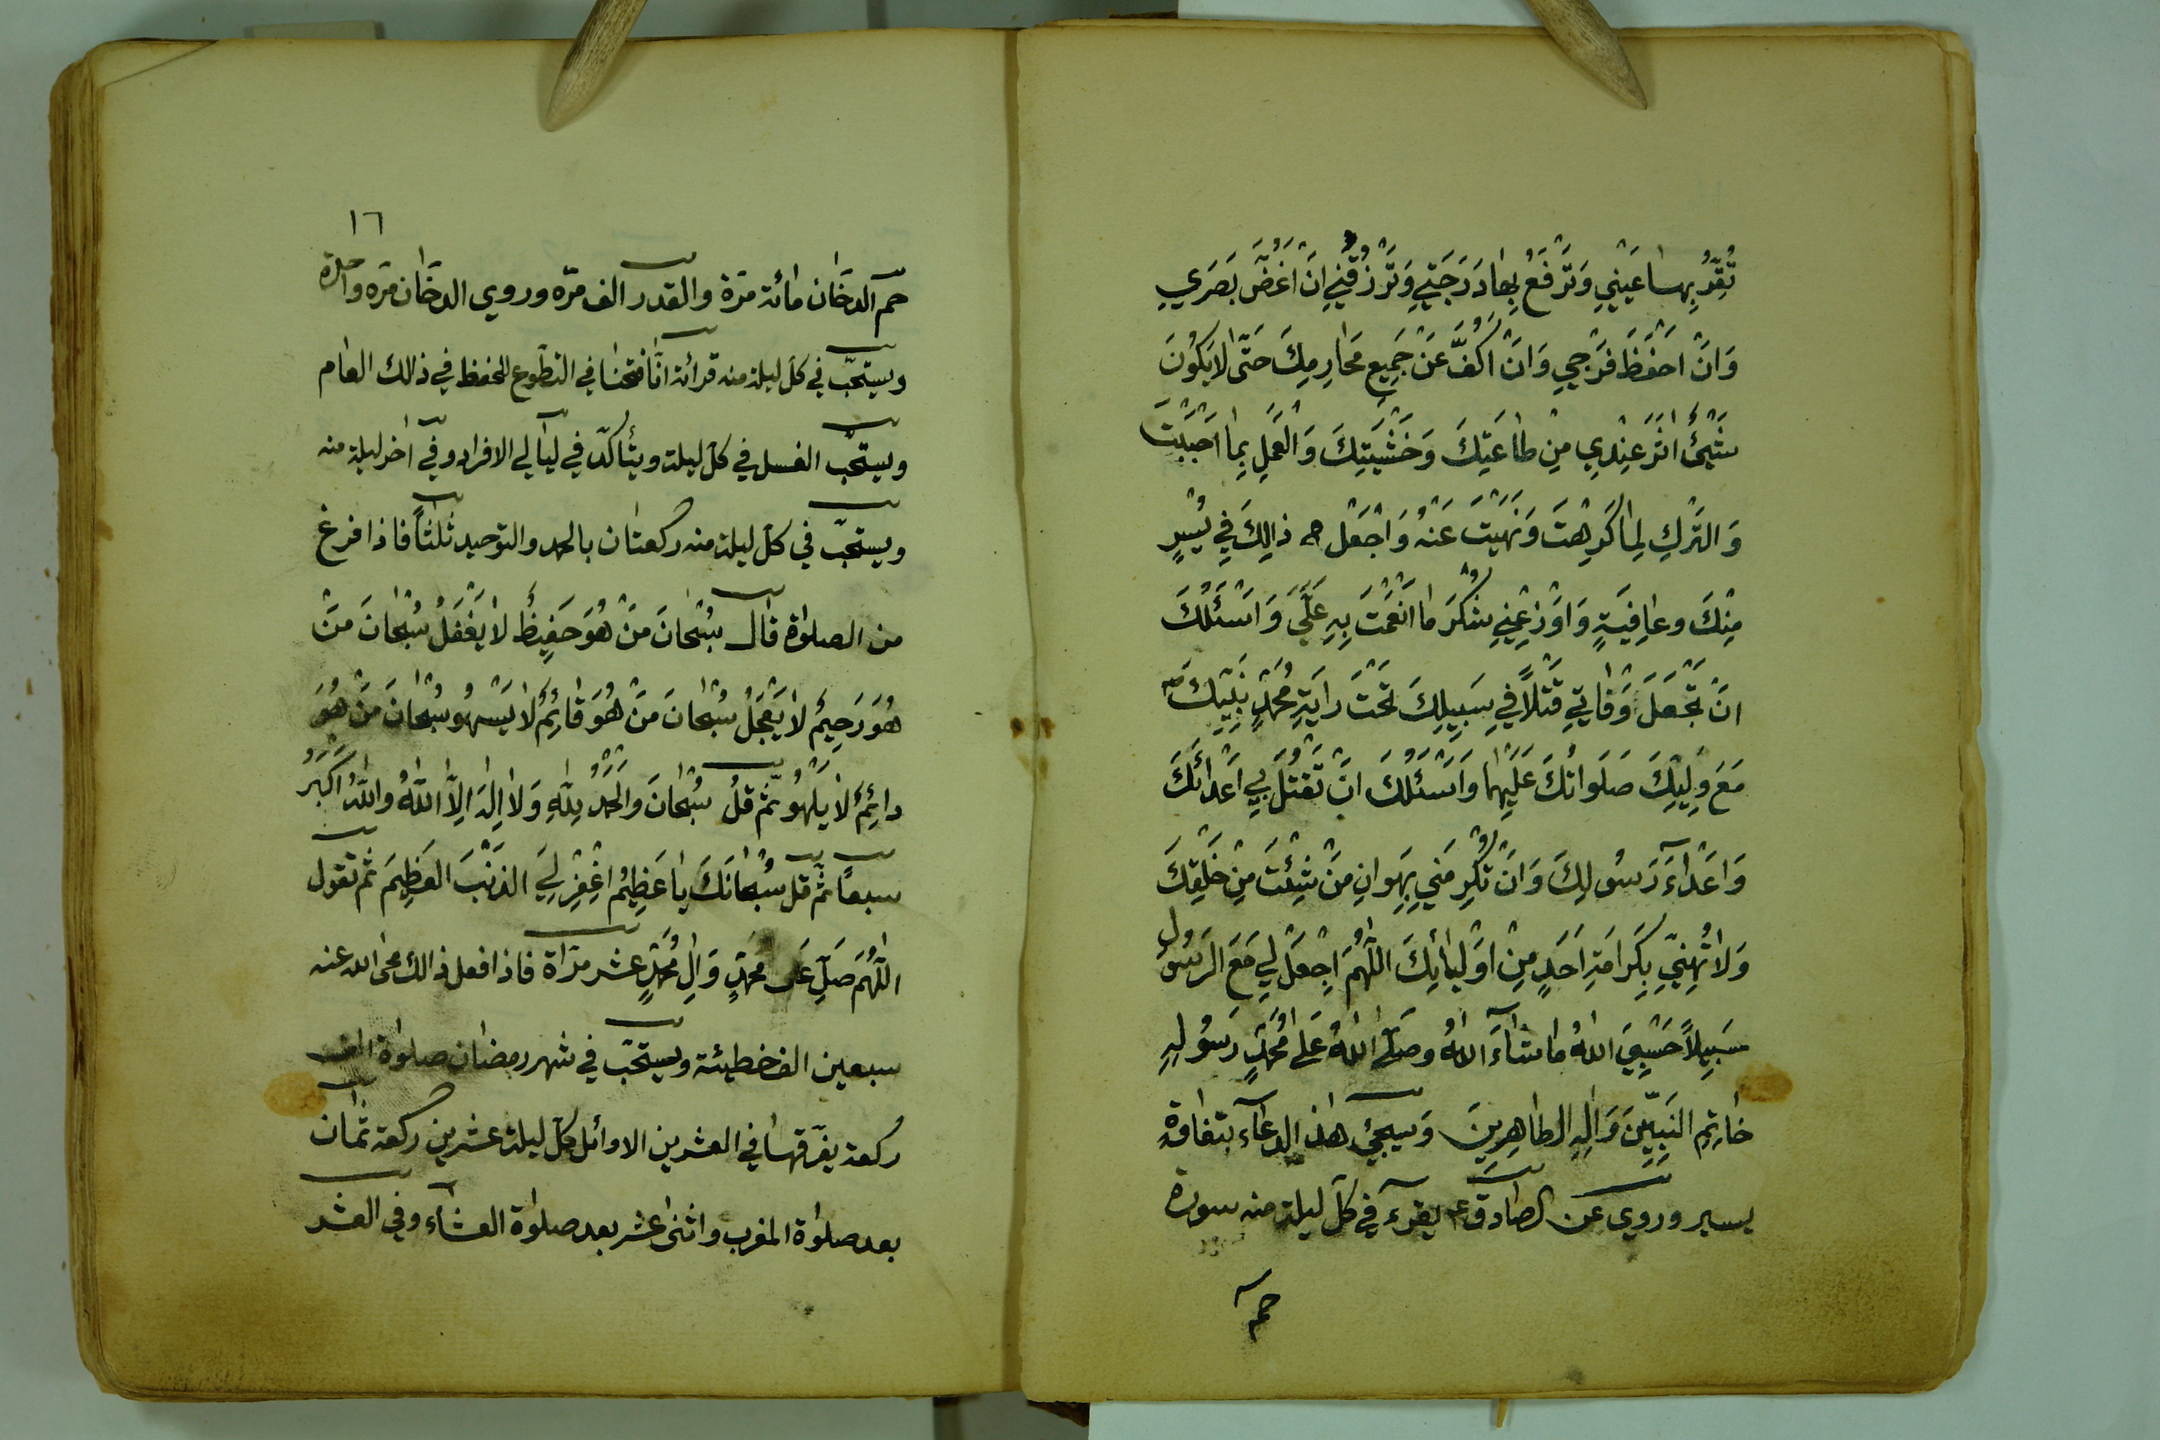 تُقِرُّ بِهٰا عَيْنِي وَتَرْفَعُ بِهٰا دَرَجَتِي وَتَرْزُقُنِي اَنْ اَغُضَّ بَصَرِي
وَاَنْ اَحْفَظَ فَرْجِي وَاَنْ اَكُفَّ عَنْ جَمِيعِ مَحٰارِمِكَ حَتّٰى لٰا يَكُونَ
شَيْئٌ اٰثَرَ عِنْدِي مِنْ طٰاعَتِكَ وَخَشْيَتِكَ وَالْعَمَلِ بِمٰا اَحْبَبْتَ
وَالتَّرْكِ لِمٰا كَرِهْتَ وَنَهَيْتَ عَنْهُ وَاجْعَلْ ذٰالِكَ فِي يُسْرٍ
مِنْكَ وَعٰافِيَةٍ وَاَوْزِعْنِي شُكْرَ مٰا اَنْعَمْتَ بِهِ عَلَيَّ وَاَسْئَلُكَ
اَنْ تَجْعَلَ وَفٰاتِي قَتْلًا فِي سَبِيلِكَ تَحْتَ رٰايَةِ مُحَمَّدٍ نَبِيِّكَ ص
مَعَ وَلِيِّكَ صَلَوٰاتُكَ عَلَيْهِمٰا وَاَسْئَلُكَ اَنْ تَقْتُلَ بِي اَعْدٰائَكَ
وَاَعْدٰاءَ رَسُولِكَ وَاَنْ تُكْرِمَنِي بِهَوٰانِ مَنْ شِئْتَ مِنْ خَلْقِكَ
وَلٰا تُهِنِّي بِكَرٰامَةِ اَحَدٍ مِنْ اَوْلِيٰائِكَ اَللّٰهُمَّ اجْعَلْ لِي مَعَ الرَّسُولِ
سَبِيلًا حَسْبِيَ اللّٰهُ مٰا شٰاءَ اللّٰهُ وَصَلَّى اللّٰهُ عَلٰى مُحَمَّدٍ رَسُولِهِ
خٰاتِمِ النَّبِيِّينَ وَاٰلِهِ الطّٰاهِرِينَ وَسيجيئ هٰذا الدعٰاء بتفاوة
يسير وروي عن الصٰادق ع يقرء في كلّ ليلة منه سورة
حم
١٦
حم الدخٰان مٰائة مرّة والقدر الف مرّه وروي الدخٰان مرّه واحدة
ويستحبّ في كلّ ليلة منه قرائة انّا فتحنا في التطوّع للحفظ في ذٰالك العٰام
ويستحبّ الغسل في كلّ ليلة ويتأكدّ في ليٰالي الافراد وفي اخر ليلة منه
ويستحبّ في كلّ ليلة منه ركعتان بالحمد والتوحيد ثلٰثاً فاذا فرغ
من الصلوٰة قال سُبْحٰانَ مَنْ هُوَ حَفِيظٌ لٰا يَغْفَلُ سُبْحٰانَ مَنْ
هُوَ رَحِيمٌ لٰا يَعْجَلُ سُبْحٰانَ مَنْ هُوَ قٰائِمٌ لٰا يَسْهُو سُبْحٰانَ مَنْ هُوَ
دٰائِمٌ لٰا يَلْهُو ثم قل سُبْحٰانَ وَالْحَمْدُ لِلّٰهِ وَلٰا اِلٰهَ اِلَّا اللّٰهُ وَاللّٰهُ اَكْبَرُ
سبعاً ثم قل سُبْحٰانَكَ يٰا عَظِيمُ اغْفِرْ لِيَ الذَّنْبَ الْعَظِيمَ ثم تقول
اَللّٰهُمَّ صَلِّ عَلٰى مُحَمَّدٍ وَاٰلِ مُحَمَّدٍ عشر مرٰاة فاذا فعل ذٰالك محى الله عنه
سبعين الف خطيئة ويستحبّ في شهر رمضٰان صلوٰة الف
ركعة يفرّقهٰا في العشرين الاوائل كلّ ليلة عشرين ركعة ثمٰان
بعد صلوٰة المغرب واثنى عشر بعد صلوٰة العشٰاء وفي العشر